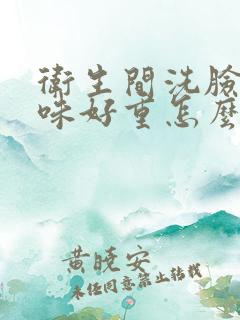 衛生間洗臉
味好重怎麼
黃曉安
未经同意禁止转载